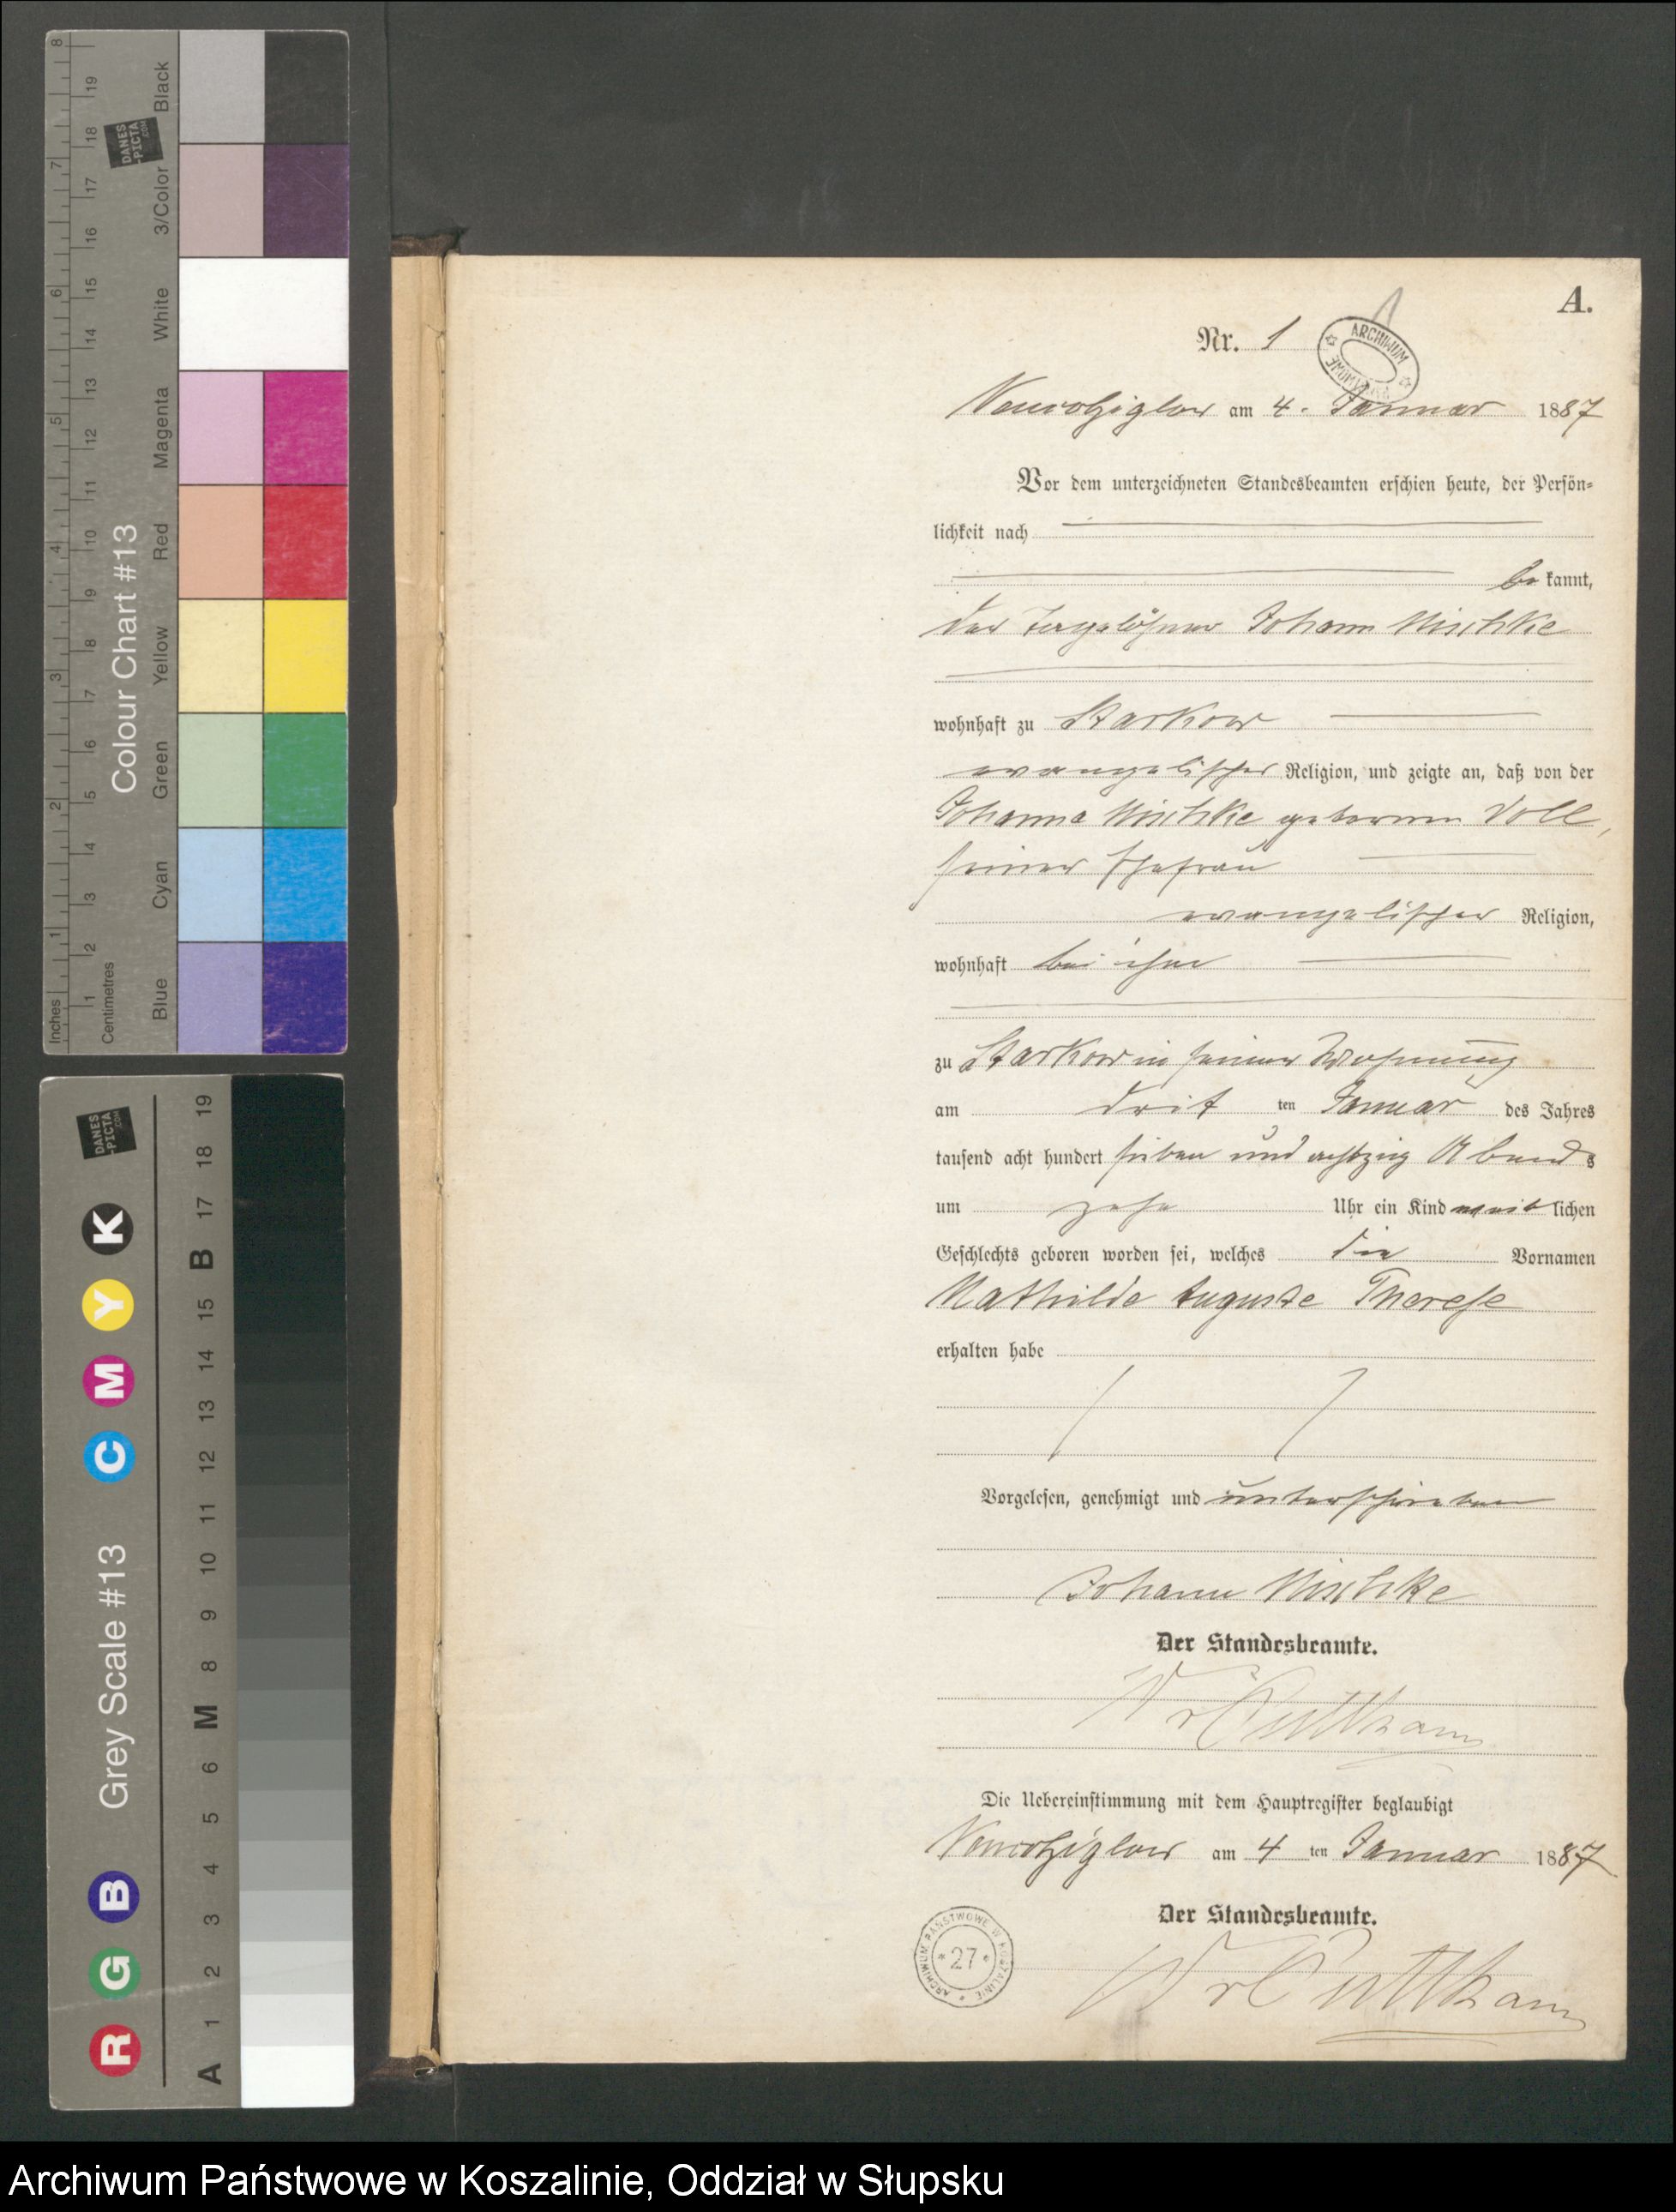 A.
Nr. 1
ARCHIWUM
am 4. Januar 1887
Vor dem unterzeichneten Standesbeamten erschien heute, der Persön-
lichkeit nach
be kannt,
der Tagelöhner Johann Mischke
wohnhaft zu Starkow
evangelischer Religion, und zeigte an, daß von der
Johanna Mischke geborenen Voll,
seiner Ehefrau
evangelischer Religion,
wohnhaft bei ihm
zu Starkow in seiner Wohnung
am dritten Januar des Jahres
tausend acht hundert sieben und achtzig Abends
um zehn Uhr ein Kind weiblichen
Geschlechts geboren worden sei, welches die Vornamen
Mathilde Auguste Therese
erhalten habe
Vorgelesen, genehmigt und unterschrieben
Johann Mischke
Der Standesbeamte.
Puttkamer
Die Uebereinstimmung mit dem Hauptregister beglaubigt
am 4 ten Januar 1887
Der Standesbeamte.
Puttkamer
ARCHIWUM PAŃSTWOWE W KOSZALINIE
* 27 *
Inches 1 2 3 4 5 6 7 8
Centimetres 1 2 3 4 5 6 7 8 9 10 11 12 13 14 15 16 17 18 19
Colour Chart #13
Blue Cyan Green Yellow Red Magenta White 3/Color Black
DANES
-PICTA
.COM
R G B Grey Scale #13 C M Y K
A 1 2 3 4 5 6 M 8 9 10 11 12 13 14 15 B 17 18 19
DANES
-PICTA
.COM
Archiwum Państwowe w Koszalinie, Oddział w Słupsku